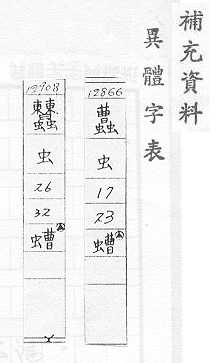 補充資料
異體字表
12866
虫
17
23
螬
12908
虫
26
32
螬